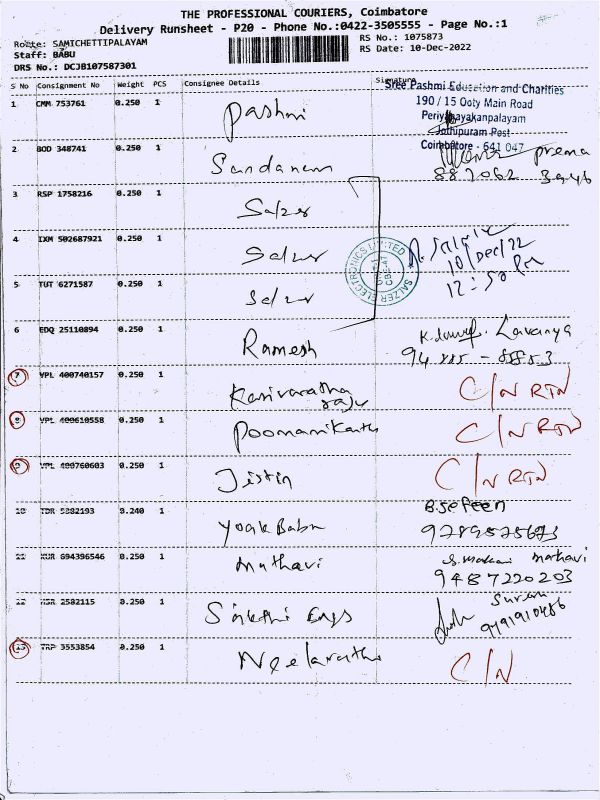 THE PROFESSIONAL COURIERS, Coimbatore
Delivery Runsheet - P20 - Phone No.:0422-3505555 - Page No.:1
Route: SAMICHETTIPALAYAM
RS No.: 1075873
Staff: BABU
RS Date: 10-Dec-2022
DRS No.: DCJB107587301
S No Consignment No Weight PCS Consignee Details Signature
Sree Pashmi Education and Charities
190 / 15 Ooty Main Road
Periyanayakanpalayam
Jothipuram Post
Coimbatore - 641 047
1 CMM 753761 0.250 1 Pashmi
2 BOD 348741 0.250 1 Sandanam
prema
3 RSP 1758216 0.250 1 Salzer
4 IXM 502687921 0.250 1 Salzer
10/Dec/22
12:50 PM
SALZER ELECTRONICS LIMITED
5 TUT 6271587 0.250 1 Salzer
6 EDQ 25110894 0.250 1 Ramesh
Lavanya
7 VPL 400740157 0.250 1 Karivaratha
raju
C/N RTN
8 VPL 400610558 0.250 1 C/N RTN
9 VPL 400760603 0.250 1 Jistin C/N RTN
10 TDR 5882193 0.240 1 Yoak Babu
B.Sefeen
11 KUR 694396546 0.250 1 Mathavi
mathavi
9487220203
12 2582115 0.250 1
13 TRP 3553854 0.250 1 C/N